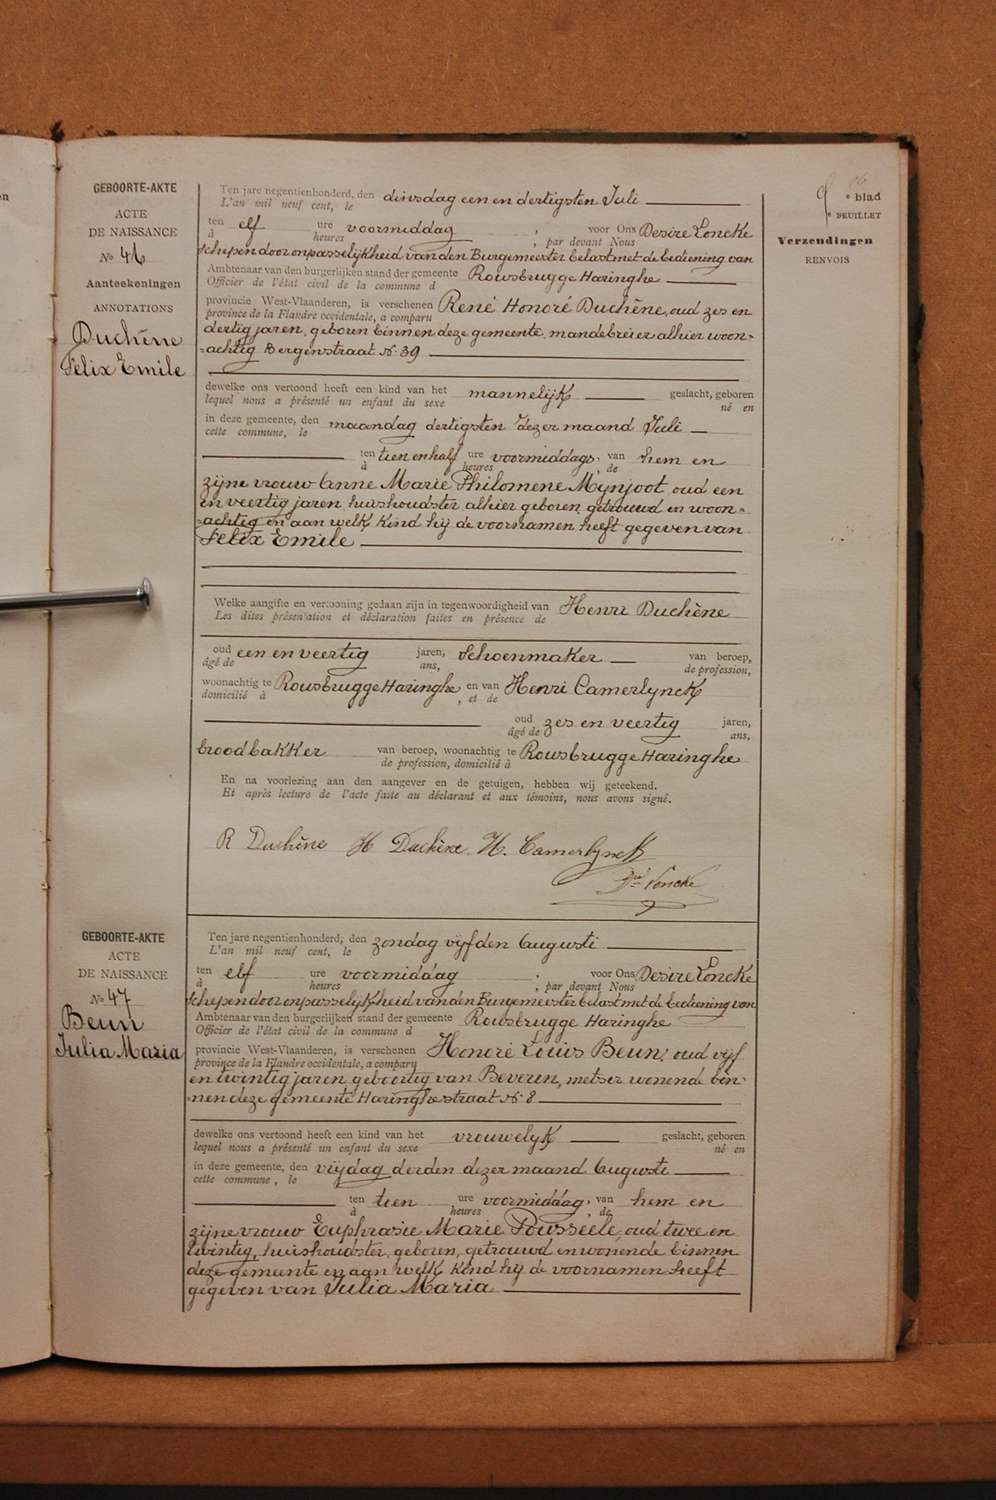 GEBOORTE-AKTE
ACTE
DE NAISSANCE
No 46
Aanteekeningen
ANNOTATIONS
Duchêne
Felix Emile
Ten jare negentienhonderd, den dinsdag een en dertigsten Juli
L'an mil neuf cent, le
ten elf ure voormiddag ; voor Ons Desire Loncke
à heures ; par devant Nous
Schepen door onpasselijkheid van den Burgemeester belast met de bediening van
Ambtenaar van den burgerlijken stand der gemeente Rousbrugge Haringhe
Officier de l'état civil de la commune d
provincie West-Vlaanderen, is verschenen René Honoré Duchêne, oud zes en
province de la Flandre occidentale, a comparu
dertig jaren, geboren binnen deze gemeente, mandebreier alhier woon-
-achtig Bergenstraat No 39
dewelke ons vertoond heeft een kind van het mannelijk geslacht, geboren
lequel nous a présenté un enfant du sexe né en
in deze gemeente, den maandag dertigsten dezer maand Juli
cette commune, le
ten tien en half ure voormiddags, van hem en
à heures , de
zijne vrouw Anne Marie Philomene Mynjoot, oud een
en veertig jaren, huishoudster alhier geboren, getrouwd en woon-
-achtig en aan welk kind hij de voornamen heeft gegeven van
Felix Emile
Welke aangifte en vertooning gedaan zijn in tegenwoordigheid van Henri Duchêne
Les dites présentation et déclaration faites en présence de
oud een en veertig jaren, schoenmaker van beroep,
âgé de ans, de profession,
woonachtig te Rousbrugge Haringhe en van Henri Camerlynck
domicilié à , et de
oud zes en veertig jaren,
âgé de ans,
broodbakker van beroep, woonachtig te Rousbrugge Haringhe
de profession, domicilié à
En na voorlezing aan den aangever en de getuigen, hebben wij geteekend.
Et après lecture de l'acte faite au déclarant et aux témoins, nous avons signé.
R Duchêne H Duchêne. H. Camerlynck
Dré Loncke
GEBOORTE-AKTE
ACTE
DE NAISSANCE
No 47
Beun
Julia Maria
Ten jare negentienhonderd, den zondag vijfden Augusti
L'an mil neuf cent, le
ten elf ure voormiddag ; voor Ons Desire Loncke
à heures ; par devant Nous
Schepen door onpasselijkheid van den Burgemeester belast met de bediening van
Ambtenaar van den burgerlijken stand der gemeente Rousbrugge Haringhe
Officier de l'état civil de la commune d
provincie West-Vlaanderen, is verschenen Honoré Louis Beun, oud vijf
province de la Flandre occidentale, a comparu
en twintig jaren, geboortig van Beveren, metser wonende bin-
-nen deze gemeente Haringhestraat No 8
dewelke ons vertoond heeft een kind van het vrouwelyk geslacht, geboren
lequel nous a présenté un enfant du sexe né en
in deze gemeente, den vrijdag derden dezer maand Augusti
cette commune, le
ten tien ure voormiddag, van hem en
à heures , de
zijne vrouw Euphrasie Marie Pousseele, oud twee en
twintig, huishoudster, geboren, getrouwd en wonende binnen
deze gemeente en aan welk kind hij de voornamen heeft
gegeven van Julia Maria
9 e blad
e FEUILLET
Verzendingen
RENVOIS